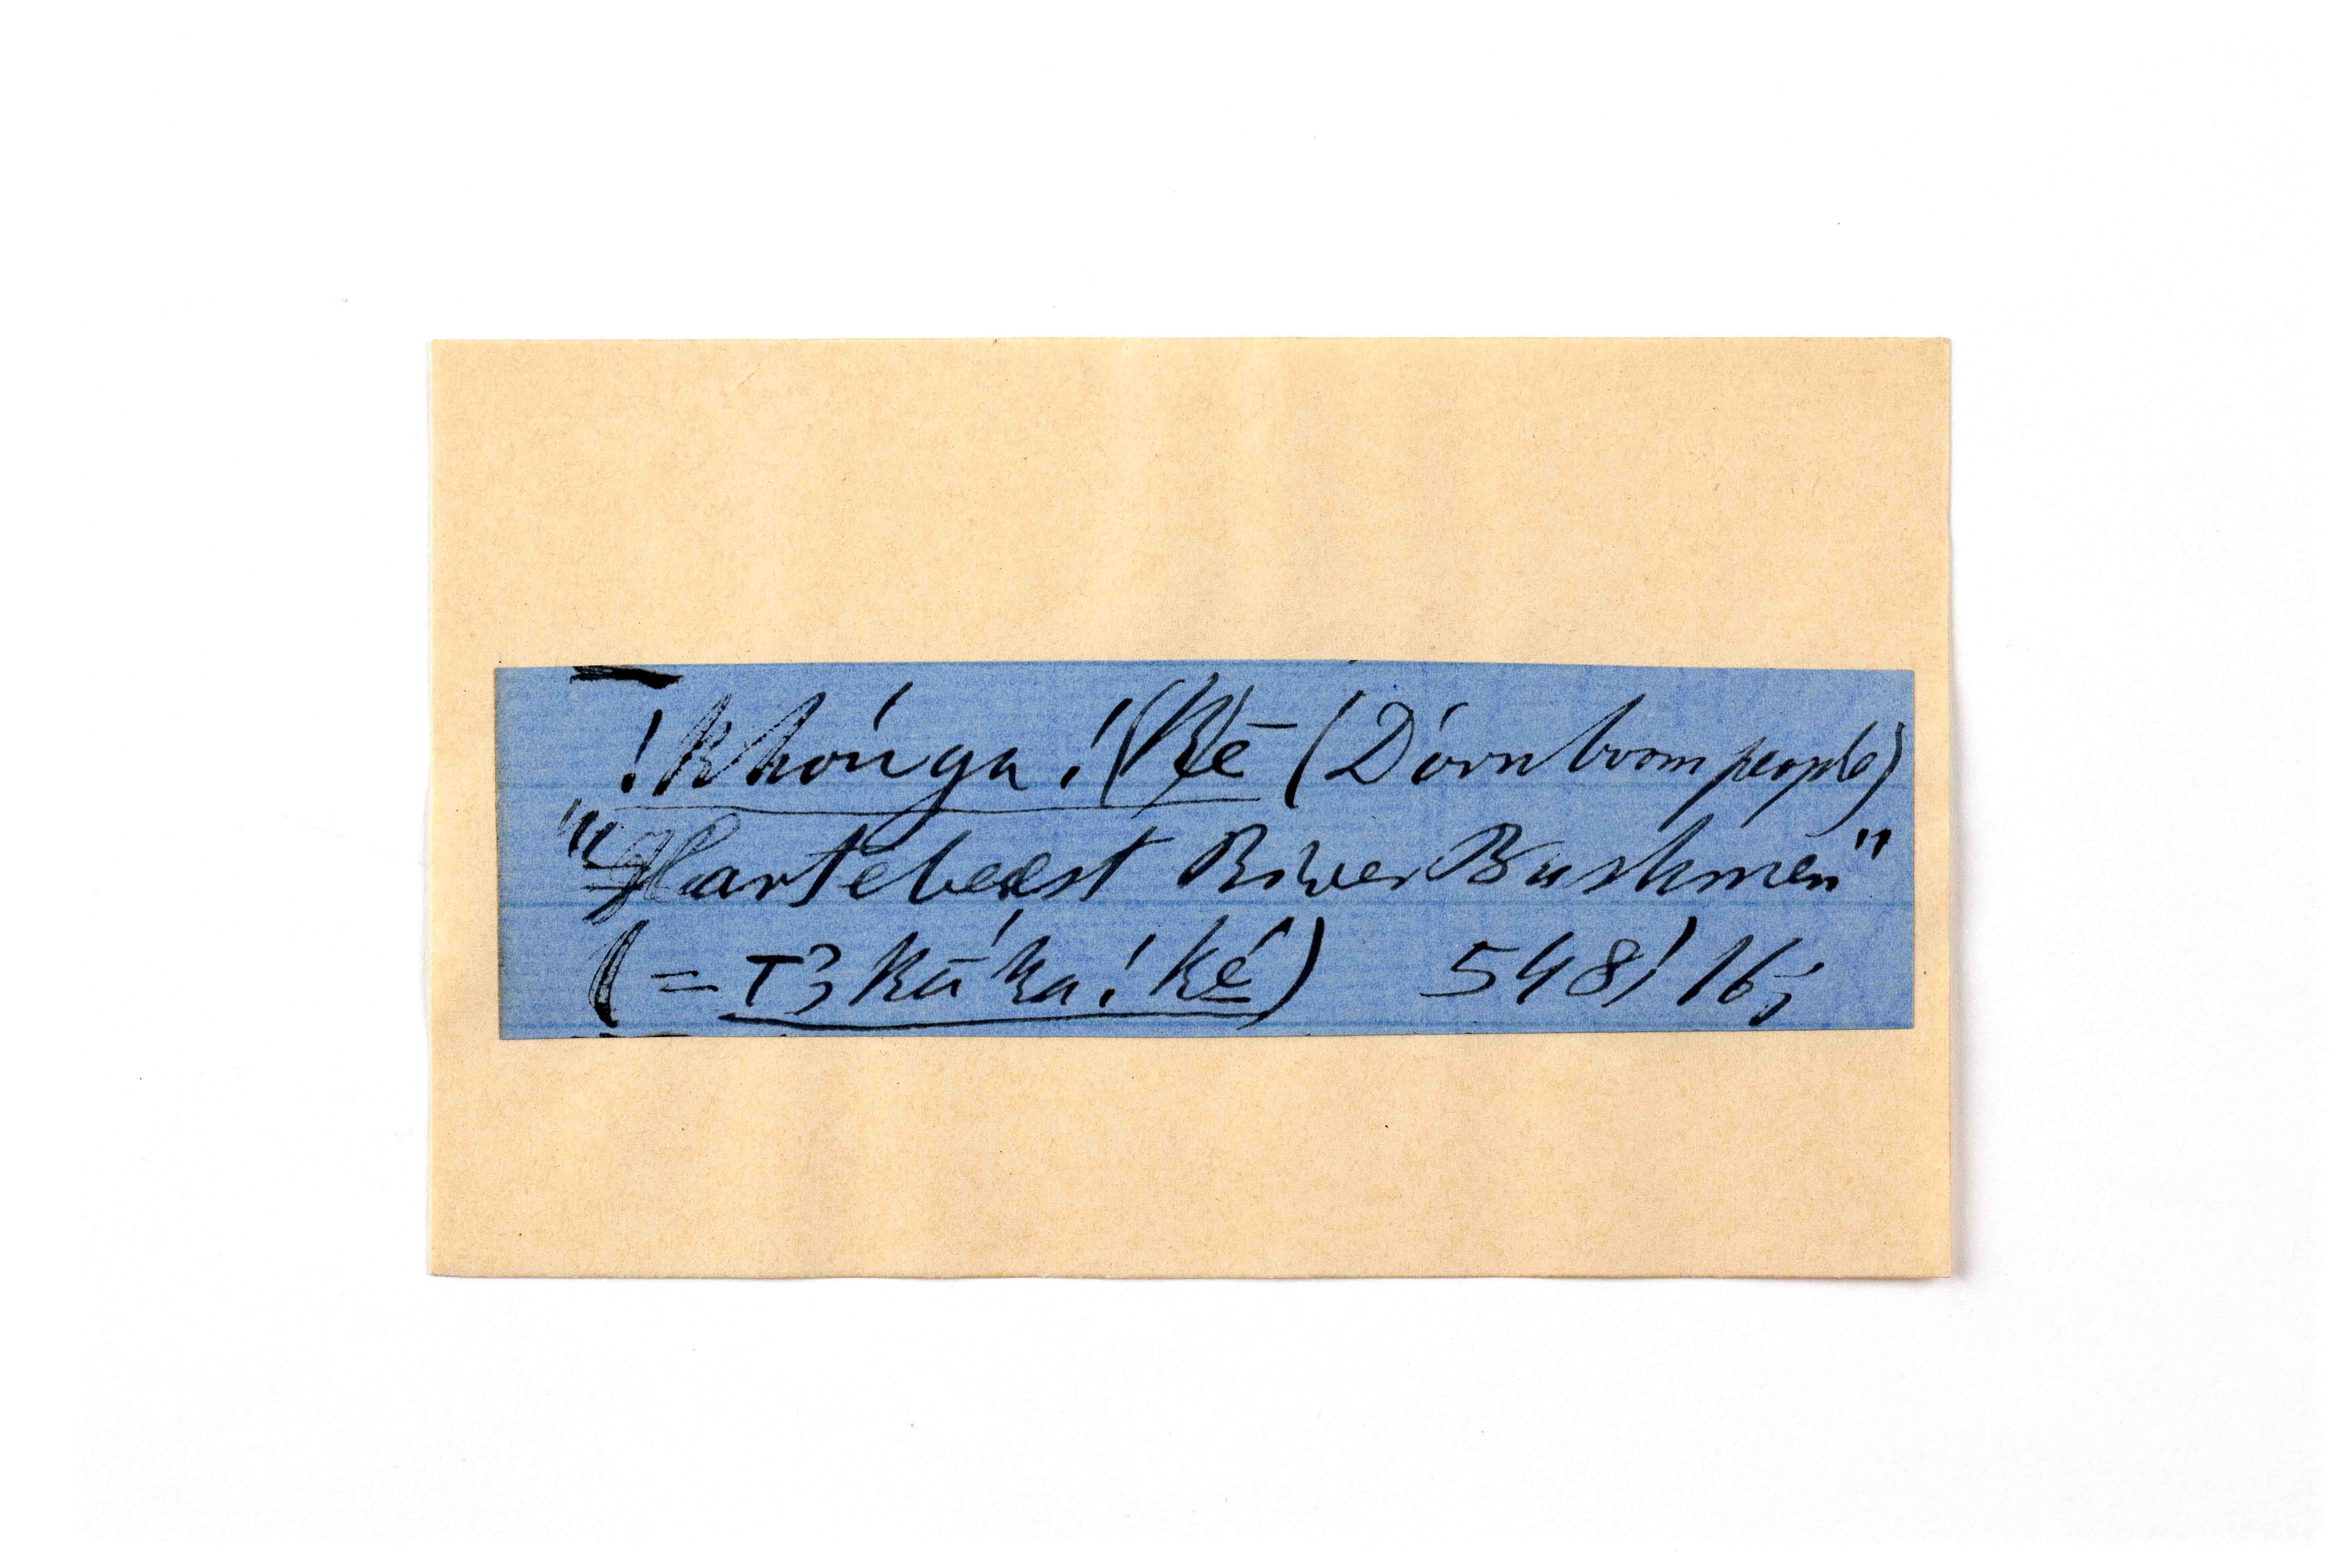 !khóuga !kē (Dóornboom people)
"Hartebeest River Bushmen"
(= Tʒkūʹka !ké) 548! 16;